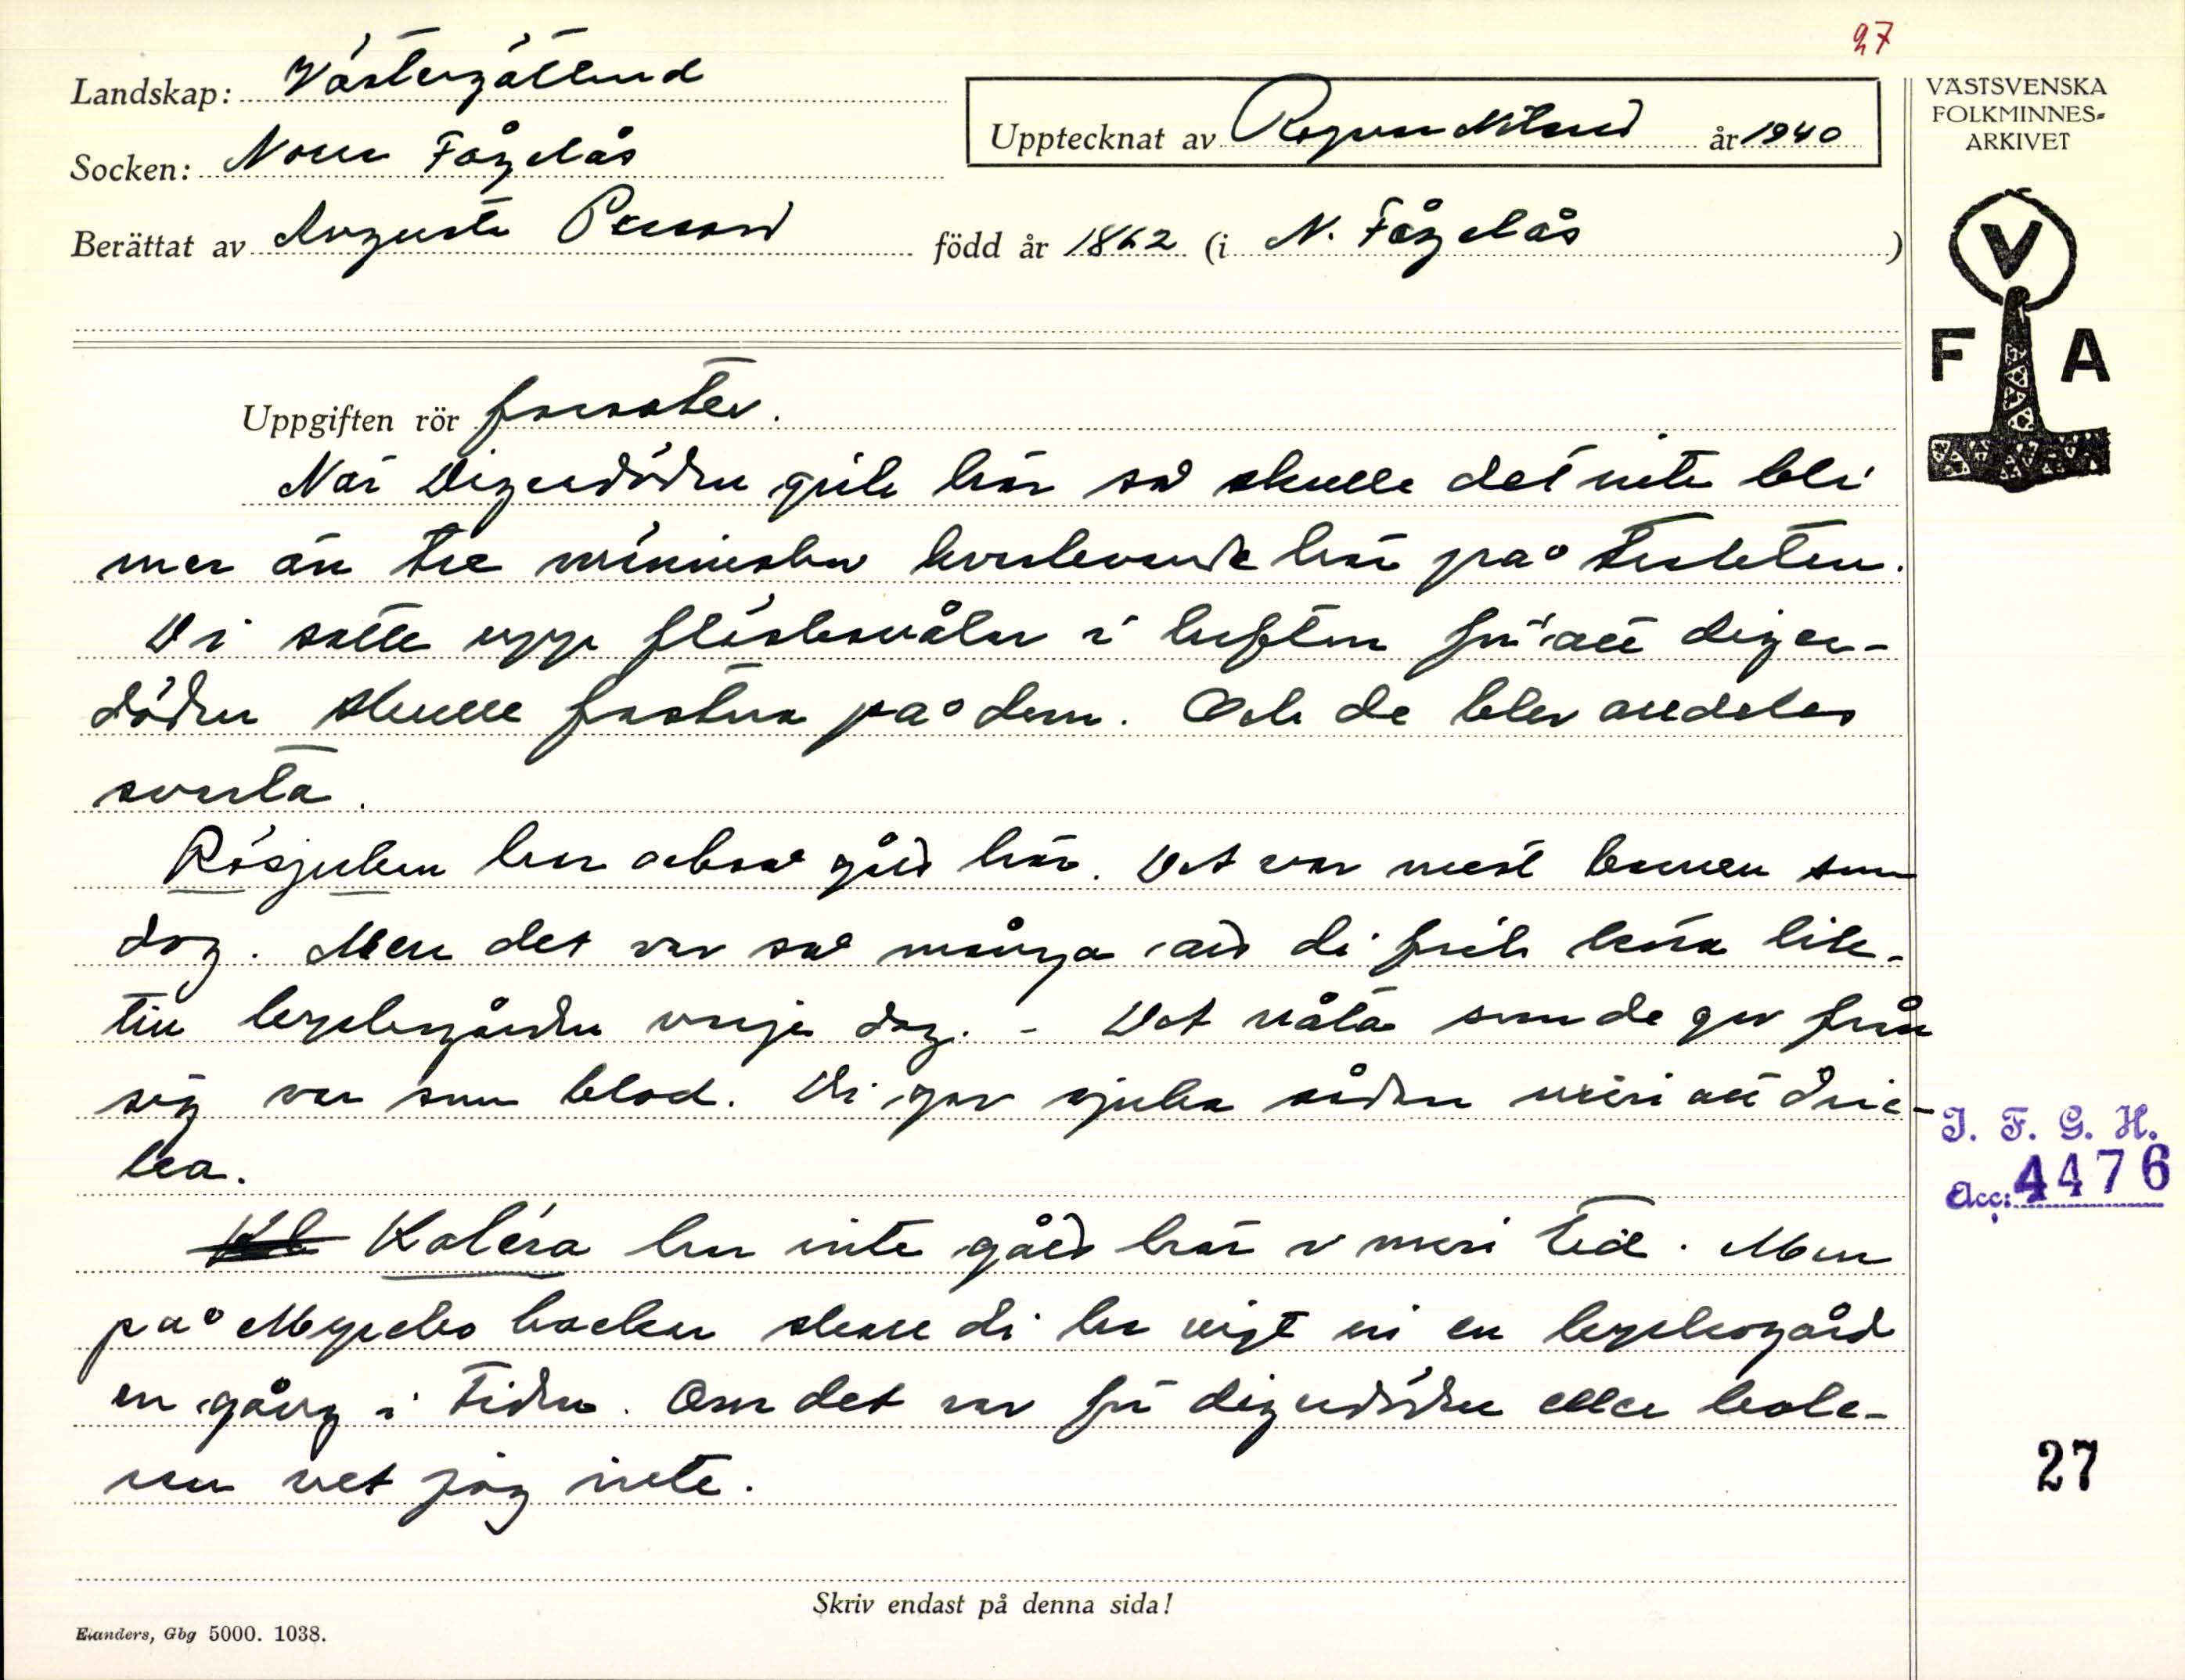 27
Landskap: Västergötland
Socken: Norra Fågelås
Upptecknat av Ragnar Nilsson år 1940
Berättat av Augusta Persson född år 1862 (i N. Fågelås)
VÄSTSVENSKA
FOLKMINNES-
ARKIVET
V
F A
Uppgiften rör farsoter.
När Digerdöden gick här så skulle det inte bli
mer än tre människor kvarlevande här på trakten.
Di satte upp fläsksvålar i luften för att diger-
döden skulle fastna på dem. Och de blev alldeles
svarta.
Rösjuken har också gått här. Det var mest barnen som
dog. Men det var så många att di fick köra lik
till kyrkogården varje dag. - Det våta som de gav från
sig var som blod. Di gav sjuka sådan urin att dric-
ka.
Koléra har inte gått här i min tid. Men
på backen skall di ha vigt in en kyrkogård
en gång i tiden. Om det var för digerdöden eller kole-
ran vet jag inte.
I. F. G. H.
Acc: 4476
27
Skriv endast på denna sida!
Elanders, Gbg 5000. 1038.